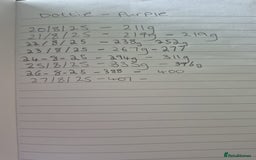 Dottie - Purple
20/8/25 211g
21/8/25 - 219g - 219g
22/8/25 - 238g 252g
23/8/25 - 267g - 277
24-8-25 - 294g - 311g
25/8/25 - 335g -
26-8-25 - 388 - 400
27/8/25 - 407 -